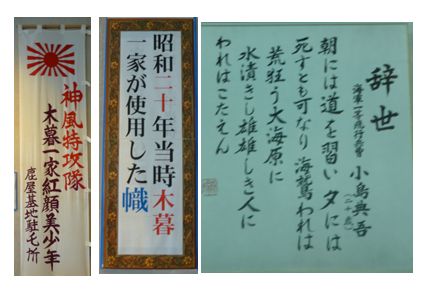 神風特攻隊
木暮一家紅顔美少年
鹿屋基地駐屯所
昭和二十年当時木暮
一家が使用した幟
辞世
海軍一等飛行兵曹 小島典吾
(二十歳)
朝には道を習い夕には
死すとも可なり海鷲われは
荒狂う大海原に
水漬きし雄雄しき人に
われはこたえん